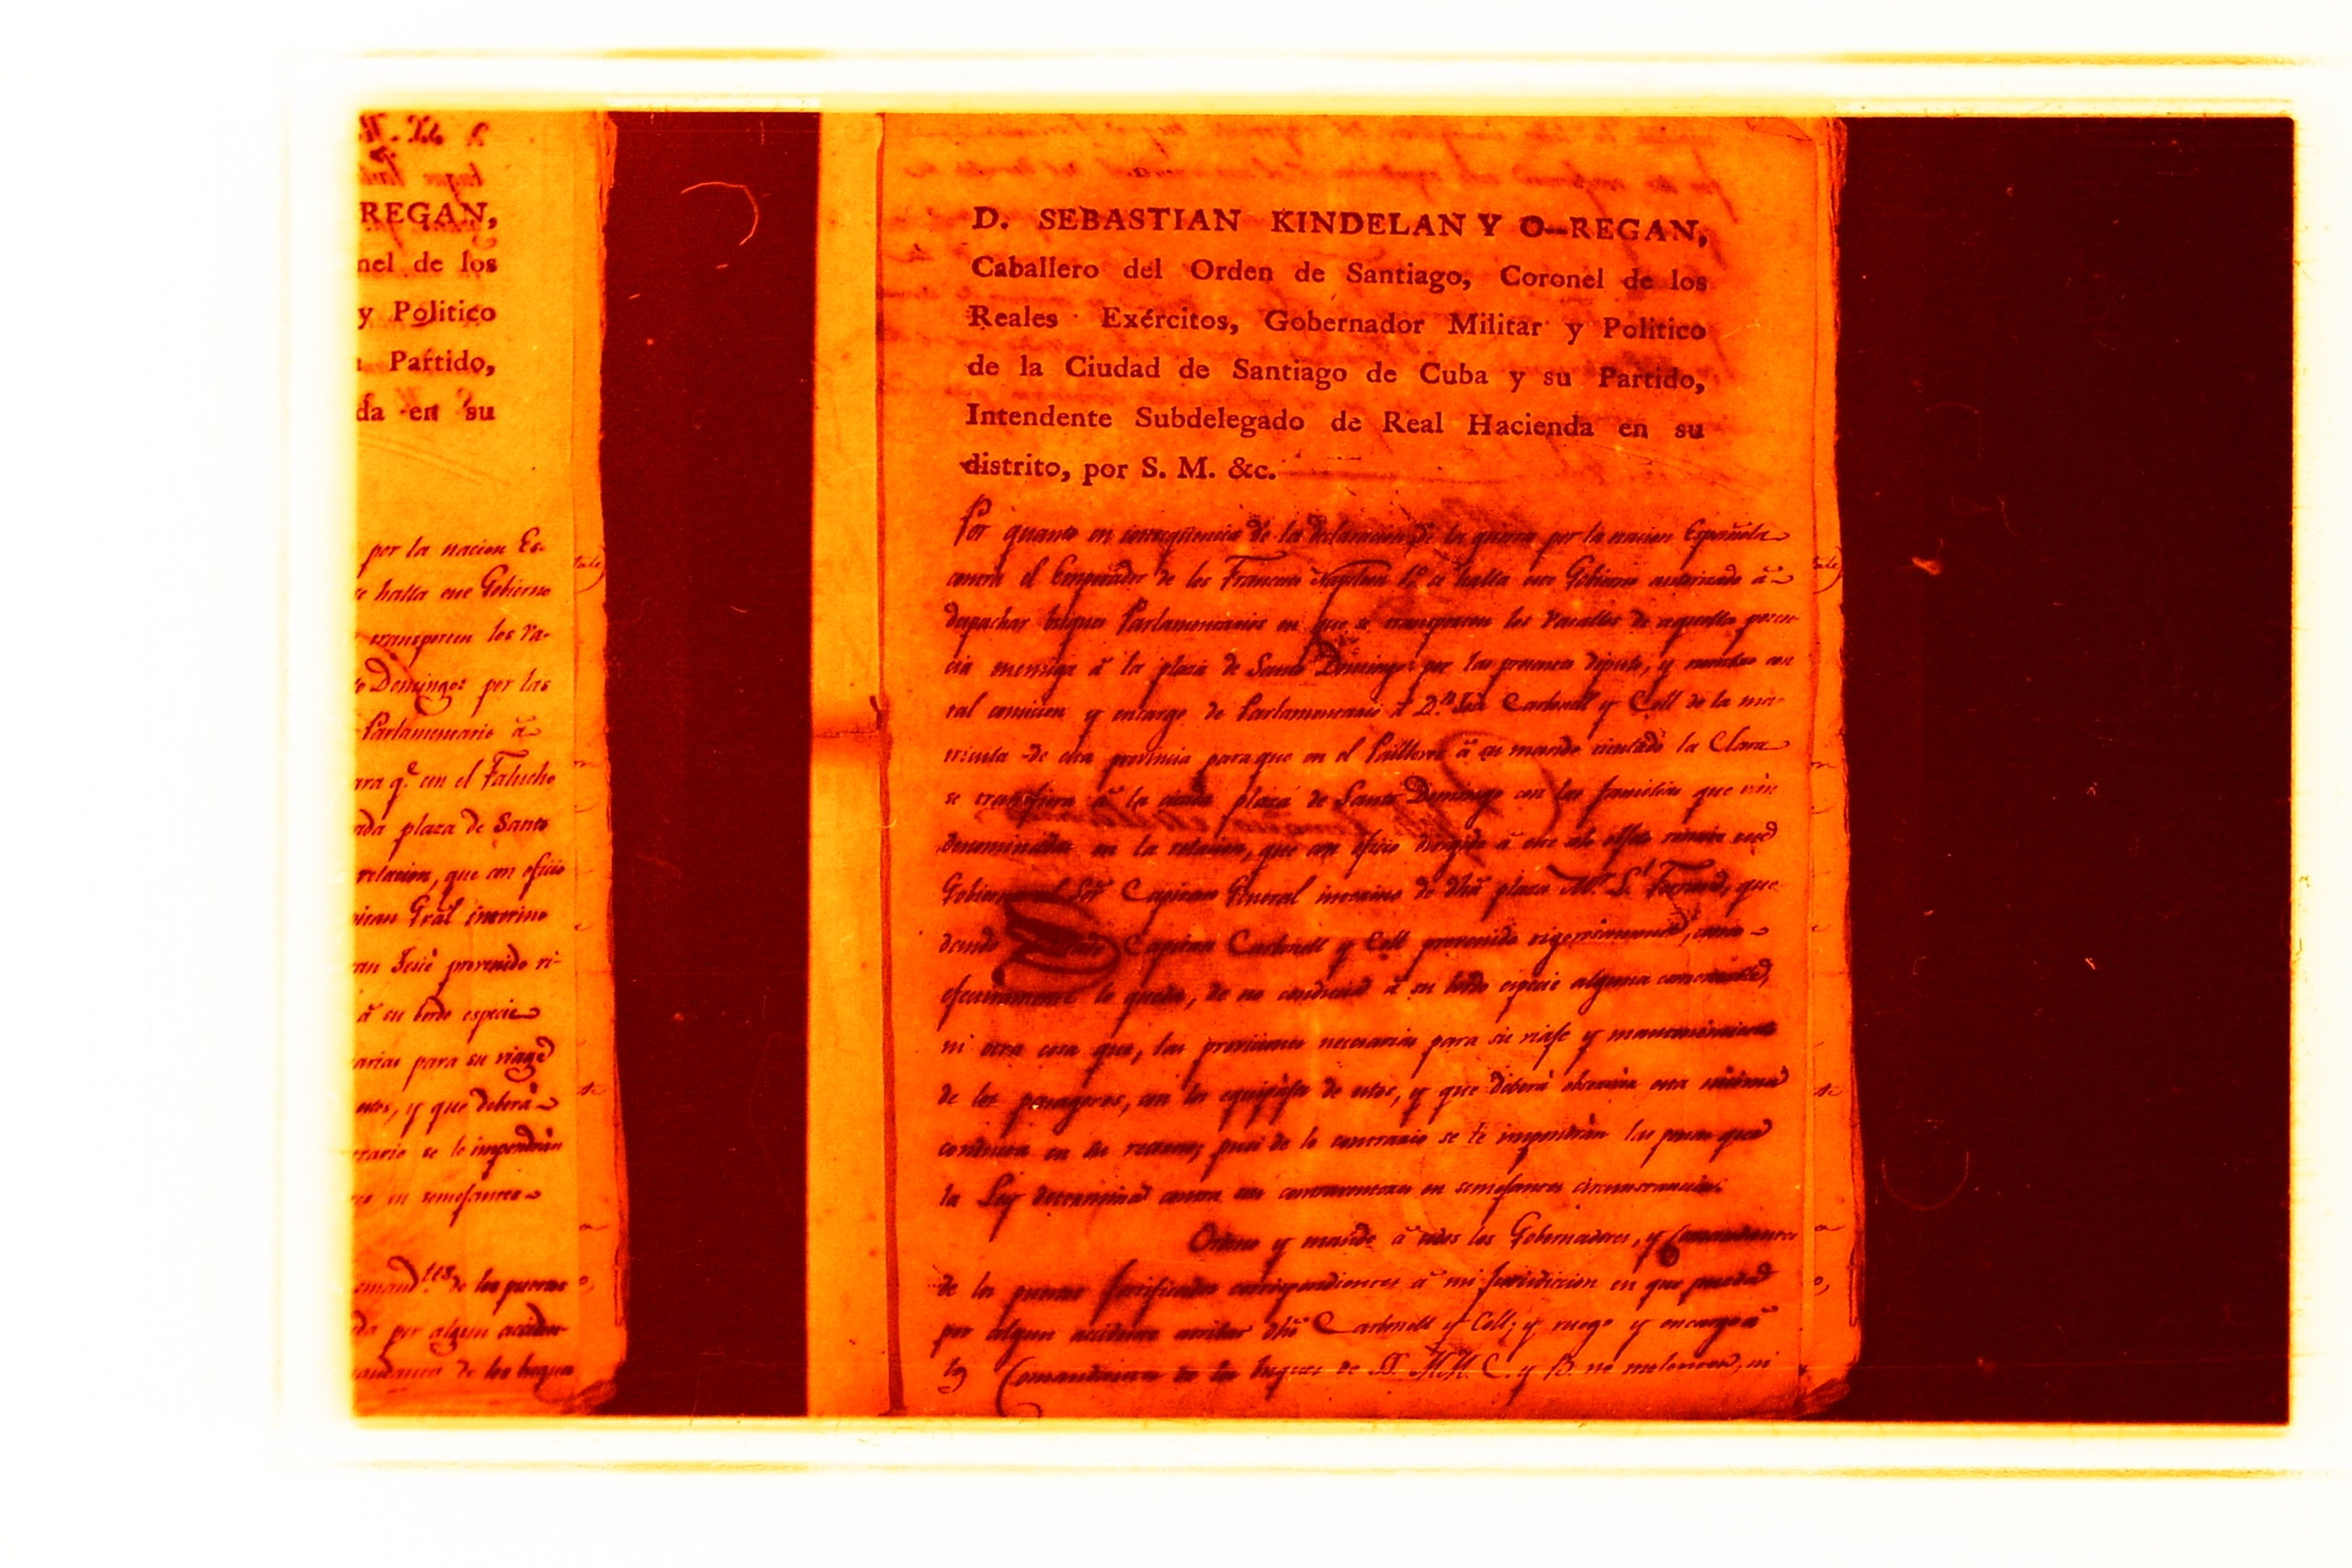 REGAN,
nel de los
y Politico
Partido,
da en su
per la nacion Es-
se halla ese Gobierno
transporten los Va-
Domingo: per las
Parlamentario â
ara qe. con el Falucho
ada plaza de Santo
relacion, que con oficio
Gral interino
José prevenido ri-
â su bordo especie
arias para su viage
estos, y que deberá
se le impondrán
en semejantes
de los puertos
da por algun acciden-
de los buques
D. SEBASTIAN KINDELAN Y O--REGAN,
Caballero del Orden de Santiago, Coronel de los
Reales Exércitos, Gobernador Militar y Politico
de la Ciudad de Santiago de Cuba y su Partido,
Intendente Subdelegado de Real Hacienda en su
distrito, por S. M. &c.
Por quanto en conseqüencia de la declaracion de la guerra por la nacion Española
contra el Emperador de los Franceses Napoleon 1º se halla este Gobierno autorizado â
despachar buques Parlamentarios en que se transporten los vasallos de aquella poten-
cia enemiga â la plaza de Santo Domingo: por las presentes diputo, y nombro con
tal comision y encargo de Parlamentario â Dn. José Carbonell y Coll de la ma-
tricula de esta provincia para que en el Pailebot â su mando titulado la Clara
se transfiera â la citada plaza de Santo Domingo con las familias que van
denominadas en la relacion, que con oficio dirigido â este
Gobierno Sor. Capitan General interino de dha plaza Mr. Ferrand, que
dando Capitan Carbonell y Coll prevenido rigorosamente, como
efectivamente lo queda, de no conducir â su bordo especie alguna comerciable,
ni otra cosa que, las provisiones necesarias para su viaje y mantenimiento
de los pasageros, con los equipajes de estos, y que deberá observar esta misma
conducta en su retorno, pues de lo contrario se le impondrán las penas que
la Ley determina contra sus contraventores en semejantes circunstancias.
Ordeno y mando â todos los Gobernadores, y Comandantes
de los puertos fortificados correspondientes â mi Jurisdiccion en que pueda
por algun accidente arribar dho Carbonell y Coll; y ruego y encargo â
los Comandantes de los buques de SS. MM. C. y B. no molesten, ni